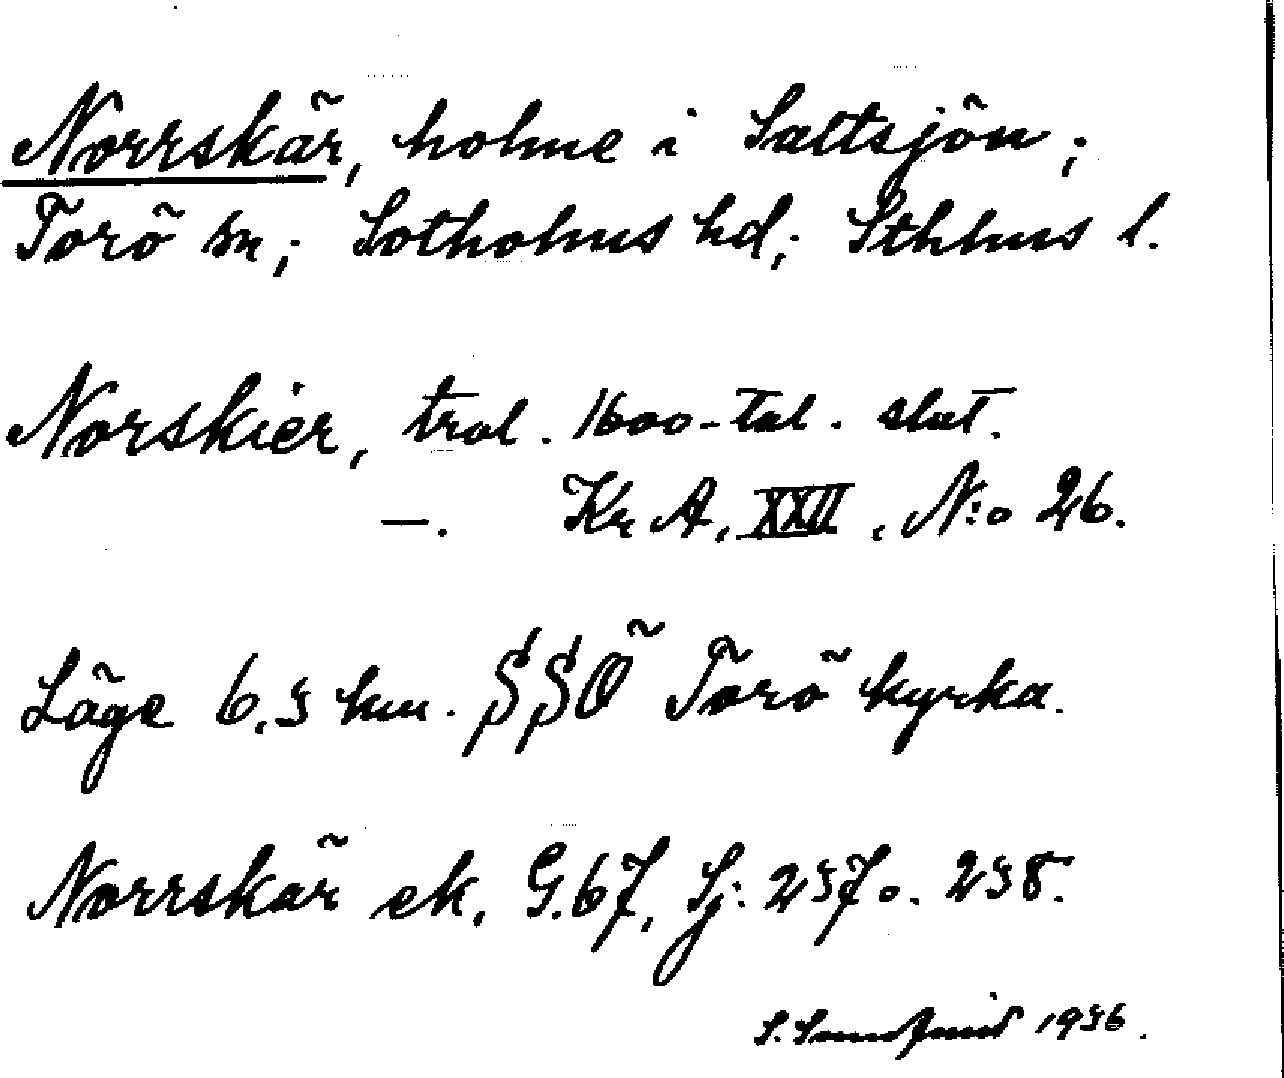 Norrskär, holme i Saltsjön;
Torö sn; Sotholms hd; Sthlms l.
Norskier, trol. 1600-tal. slut.
—. Kr A, XXII, N:o 26.
Läge 6,5 km. SSÖ Torö kyrka.
Norrskär ek, G.67, Sj: 257 o. 258.
S. Sundqvist 1936.